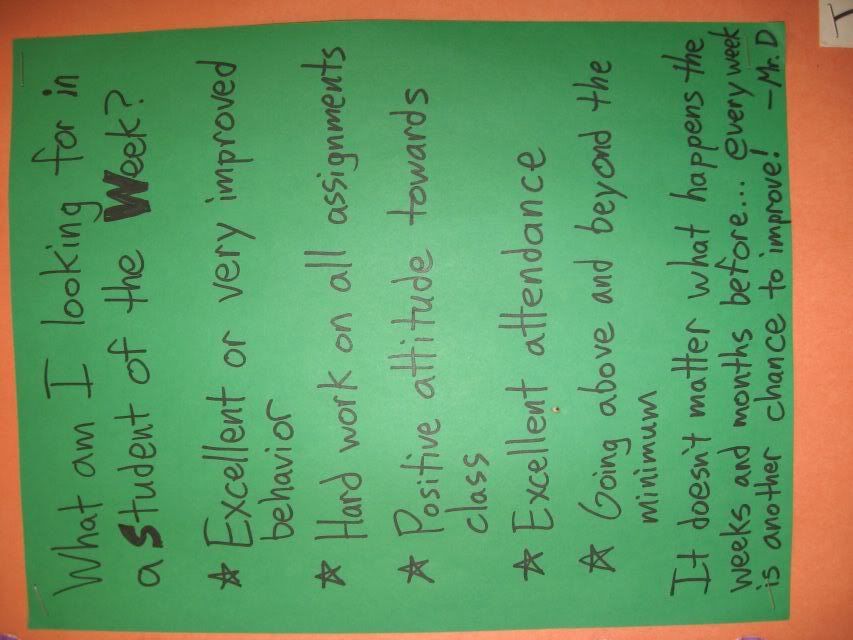 What am I looking for in
a Student of the Week?
☆ Excellent or very improved
behavior
☆ Hard work on all assignments
☆ Positive attitude towards
class
☆ Excellent attendance
☆ Going above and beyond the
minimum
It doesn't matter what happens the
weeks and months before... every week
is another chance to improve! -Mr. D